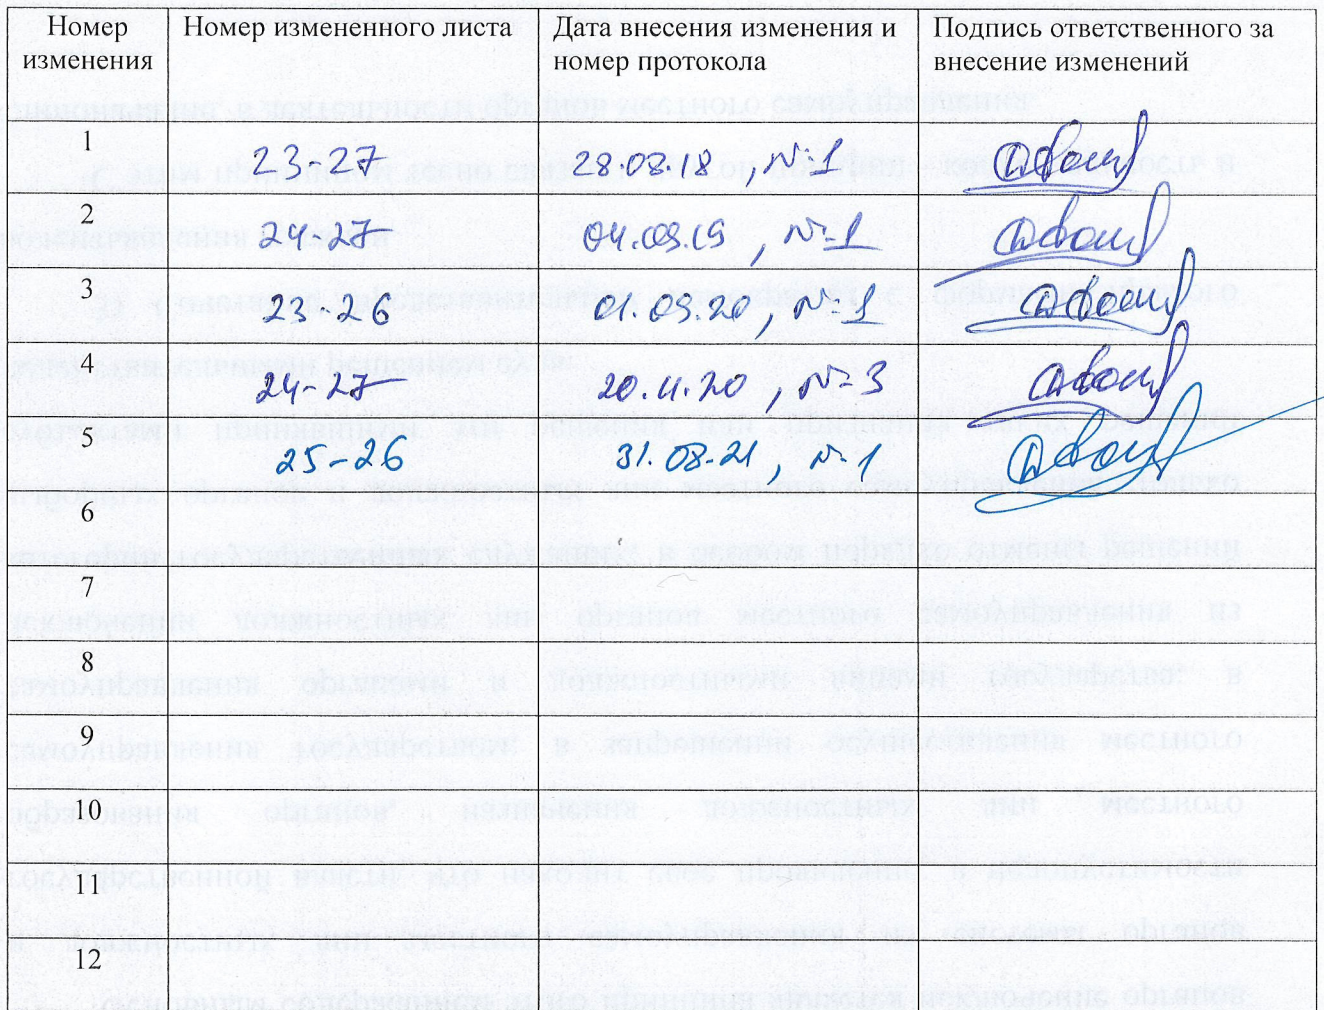 Номер изменения Номер измененного листа Дата внесения изменения и номер протокола Подпись ответственного за внесение изменений
1 23-27 28.08.18, №1
2 24-27 04.09.19, №1
3 23-26 01.09.20, №1
4 24-27 20.11.20, №3
5 25-26 31.08.21, №1
6
7
8
9
10
11
12